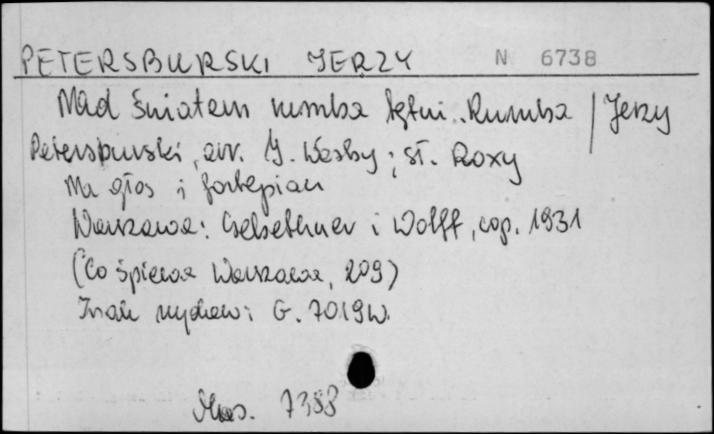 PETERSBURSKI JERZY N 6738
Nad światem rumba tętni.. Rumba / Jerzy
Petersburski, arr. J. Wasby ; sł. Roxy
Na głos i fortepian
Warszawa: Gebethner i Wolff, cop. 1931
(Co śpiewa Warszawa, 209)
Znak wydaw: G. 7019 W.
Mus. 7388